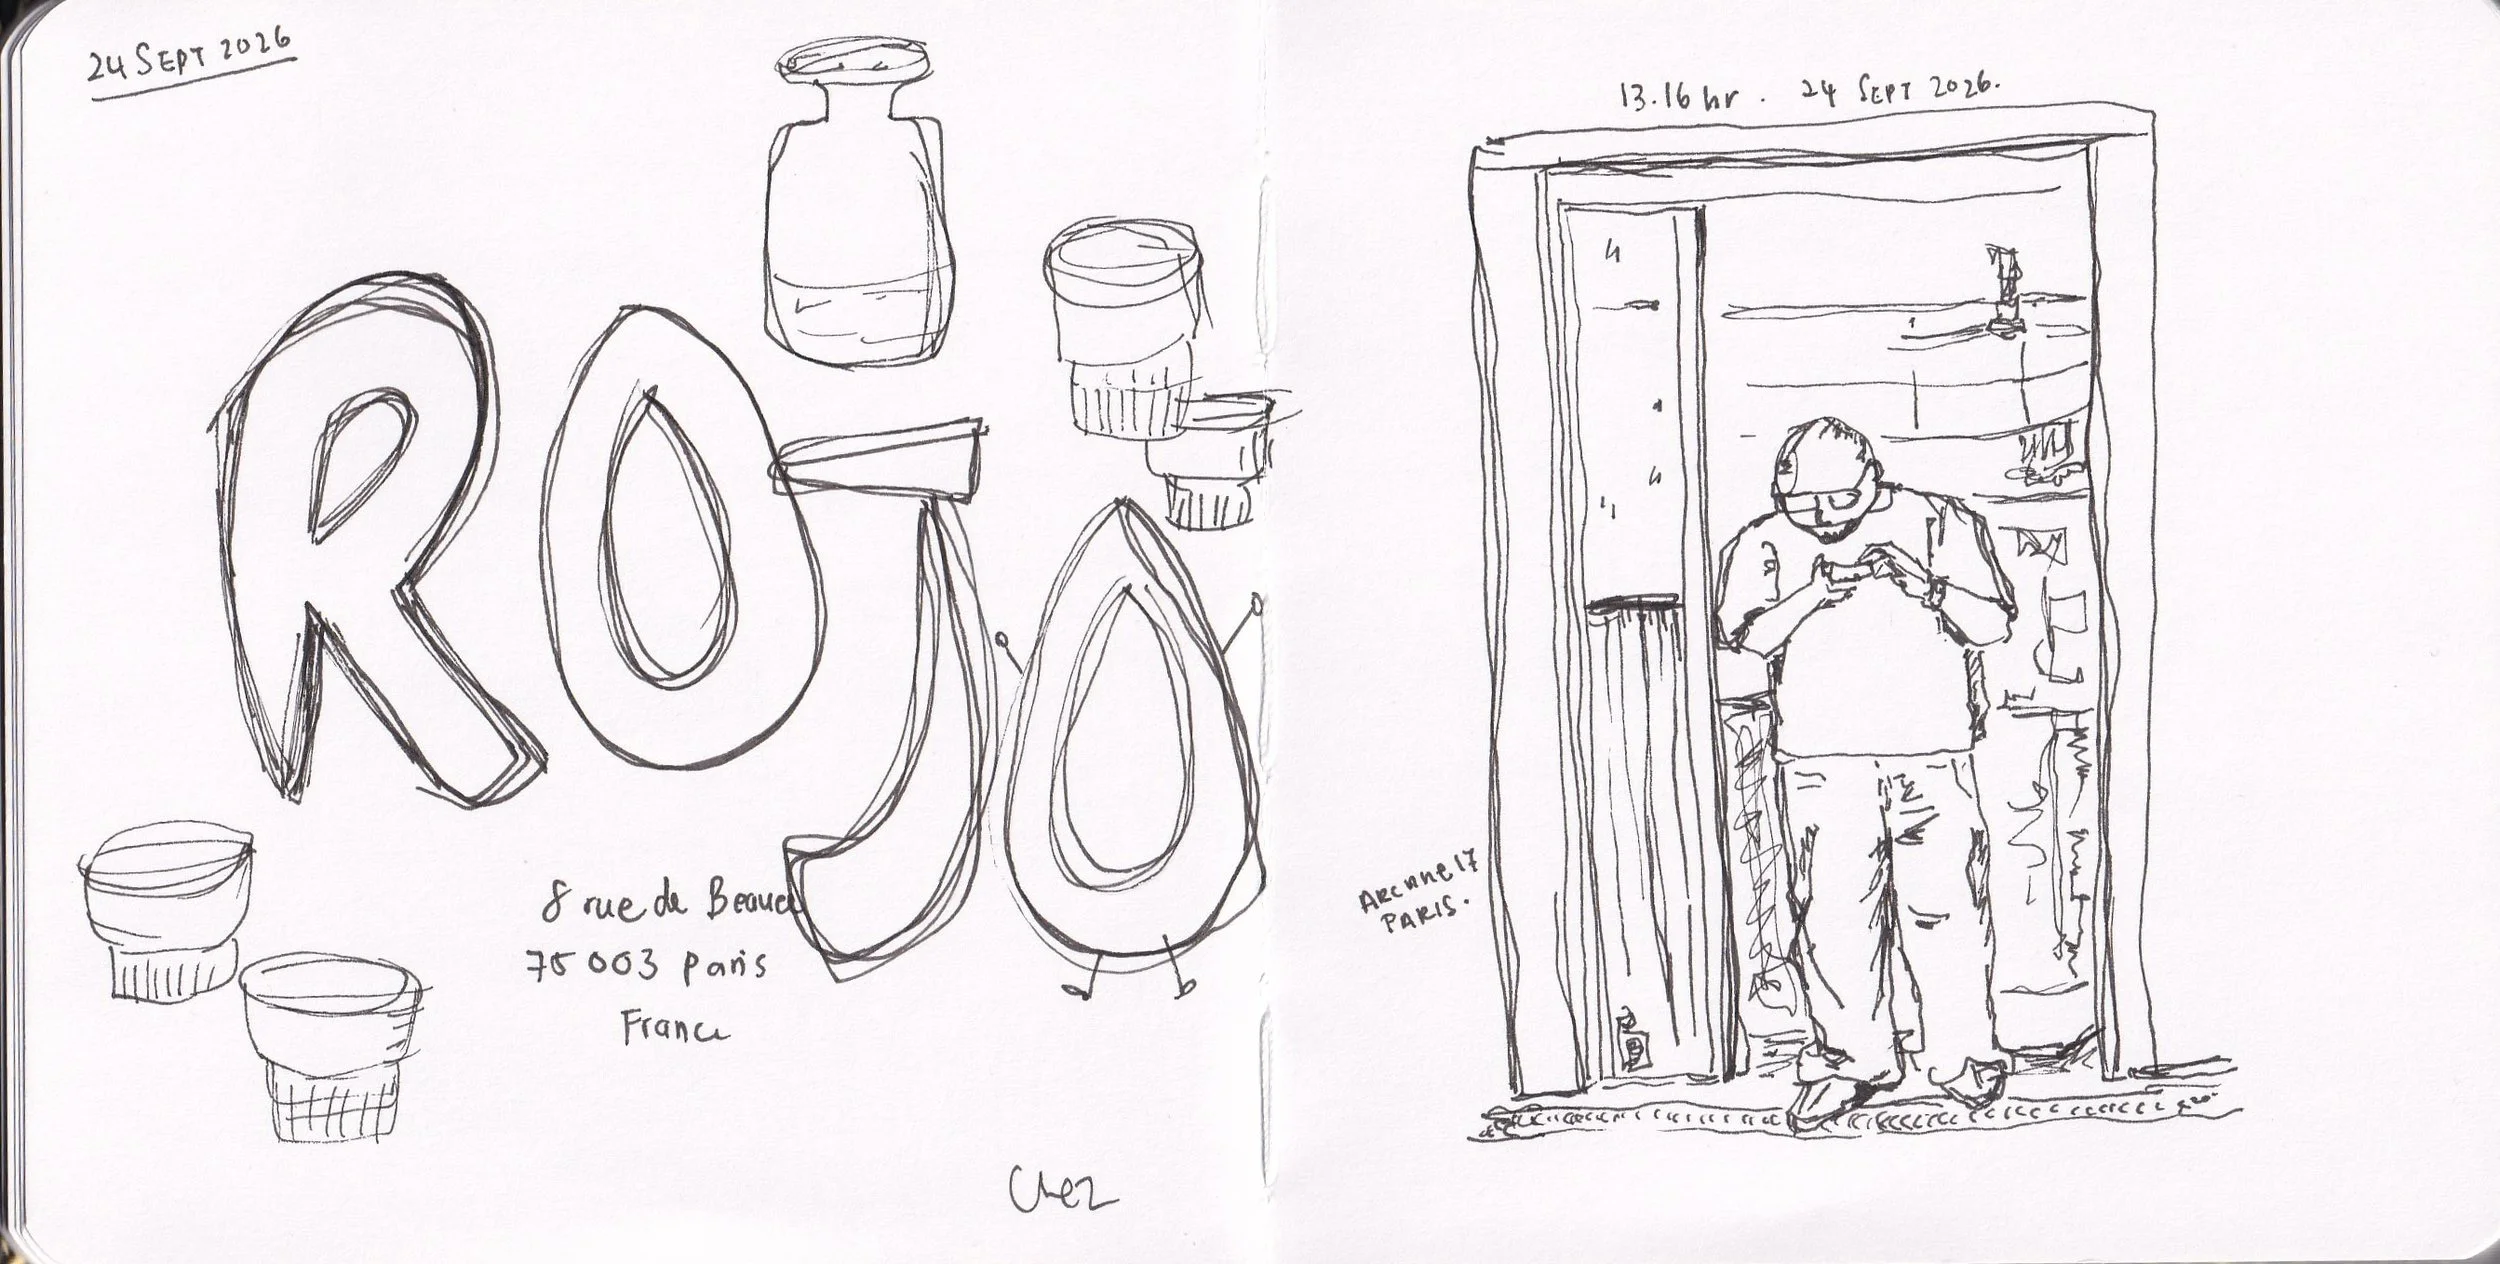 24 SEPT 2026
ROJO
8 rue de Beauce
75003 Paris
France
Chez
13.16 hr. 24 SEPT 2026.
ARCANE 17
PARIS.